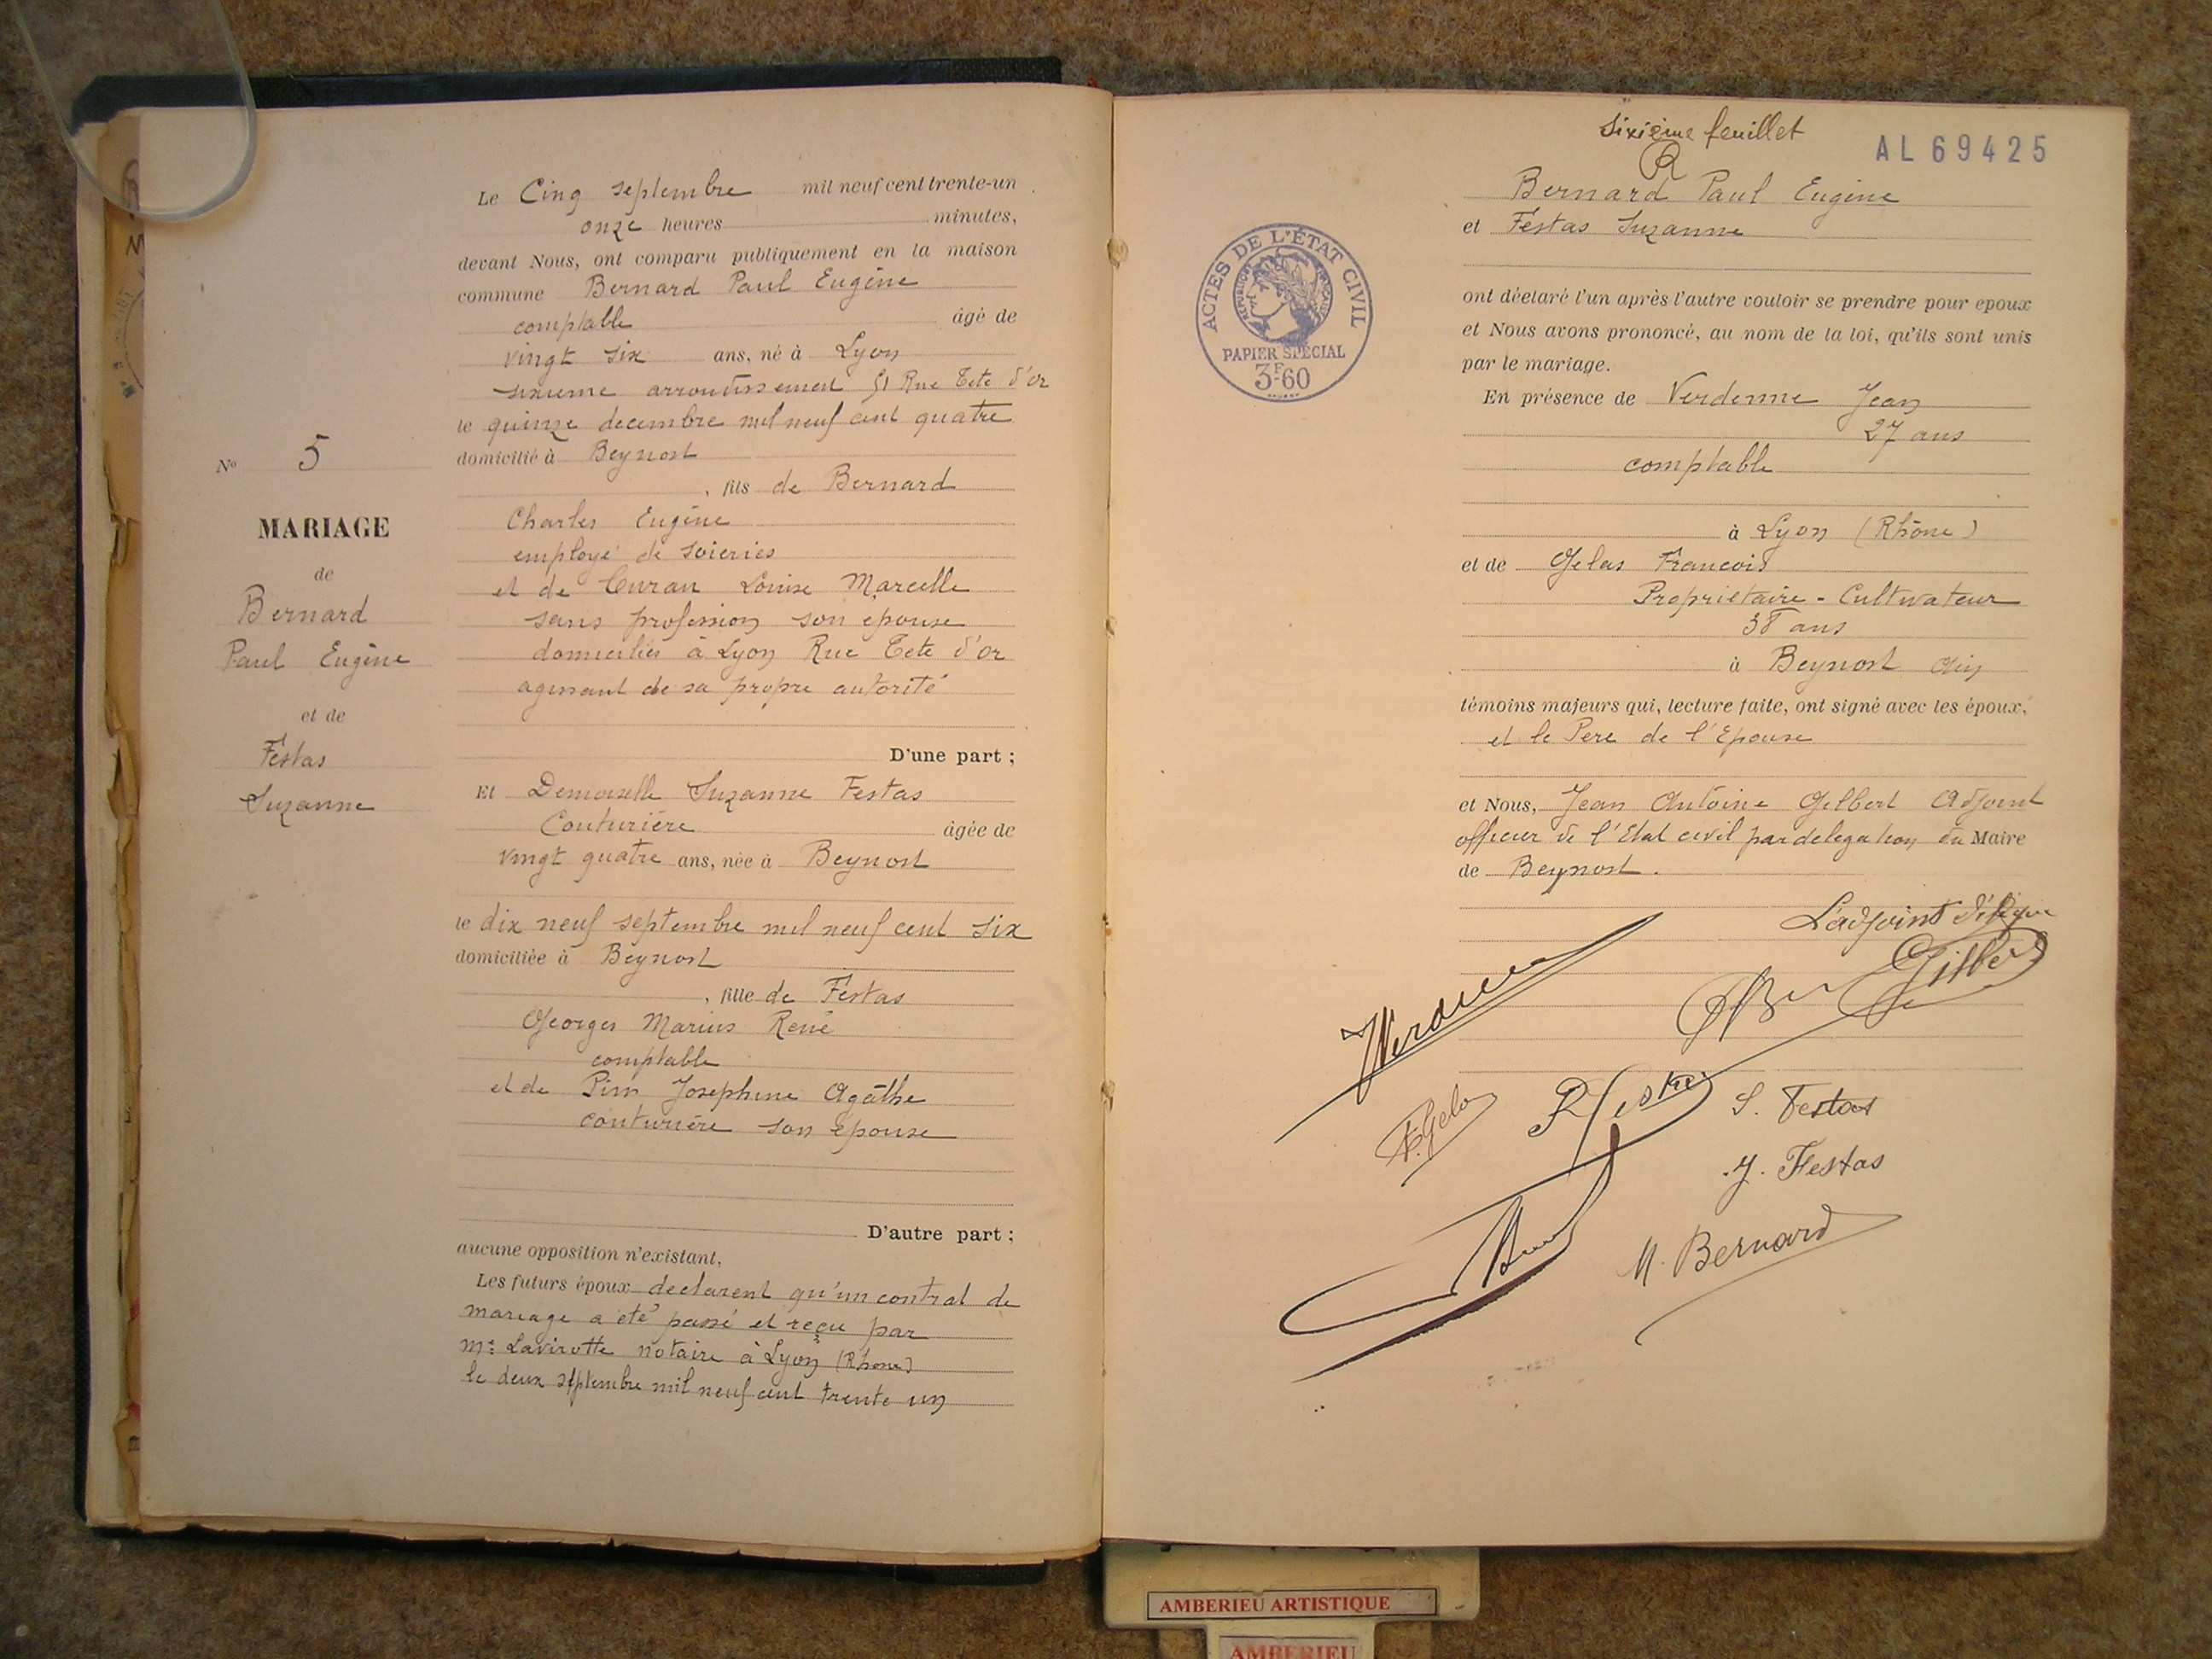 Le Cinq septembre mil neuf cent trente-un
onze heures minutes,
devant Nous, ont comparu publiquement en la maison
commune Bernard Paul Eugène
comptable âgé de
vingt six ans, né à Lyon
sixieme arrondissement 51 Rue Tete d'or
le quinze decembre mil neuf cent quatre
domicilié à Beynost
, fils de Bernard
Charles Eugène
employé de soieries
et de Curan Louise Marcelle
sans profession son epouse
domiciliés à Lyon Rue Tete d'or
agissant de sa propre autorité
D'une part ;
Nº 5
MARIAGE
de
Bernard
Paul Eugène
et de
Festas
Suzanne
Et Demoiselle Suzanne Festas
Couturière âgée de
vingt quatre ans, née à Beynost
le dix neuf septembre mil neuf cent six
domiciliée à Beynost
, fille de Festas
Georges Marius René
comptable
et de Pin Josephine Agathe
couturière son epouse
D'autre part ;
aucune opposition n'existant,
Les futurs époux declarent qu'un contrat de
mariage a été passé et reçu par
Me Lavirotte notaire à Lyon (Rhone)
le deux septembre mil neuf cent trente un
Sixième feuillet
AL 69425
Bernard Paul Eugène
et Festas Suzanne
ont déclaré l'un après l'autre vouloir se prendre pour epoux
et Nous avons prononcé, au nom de la loi, qu'ils sont unis
par le mariage.
En présence de Verdenne Jean
27 ans
comptable
à Lyon (Rhône)
et de Gelas Francois
Propriétaire - Cultivateur
38 ans
à Beynost Ain
témoins majeurs qui, lecture faite, ont signé avec les époux,
et le Pere de l'Epouse
et Nous, Jean Antoine Gilbert Adjoint
officier de l'Etat civil par delegation du Maire
de Beynost.
ACTES DE L'ÉTAT CIVIL
REPUBLIQUE FRANÇAISE
PAPIER SPÉCIAL
3F60
L'adjoint délégué
Gilbert
S. Festas
J. Festas
M. Bernard
AMBERIEU ARTISTIQUE
AMBERIEU